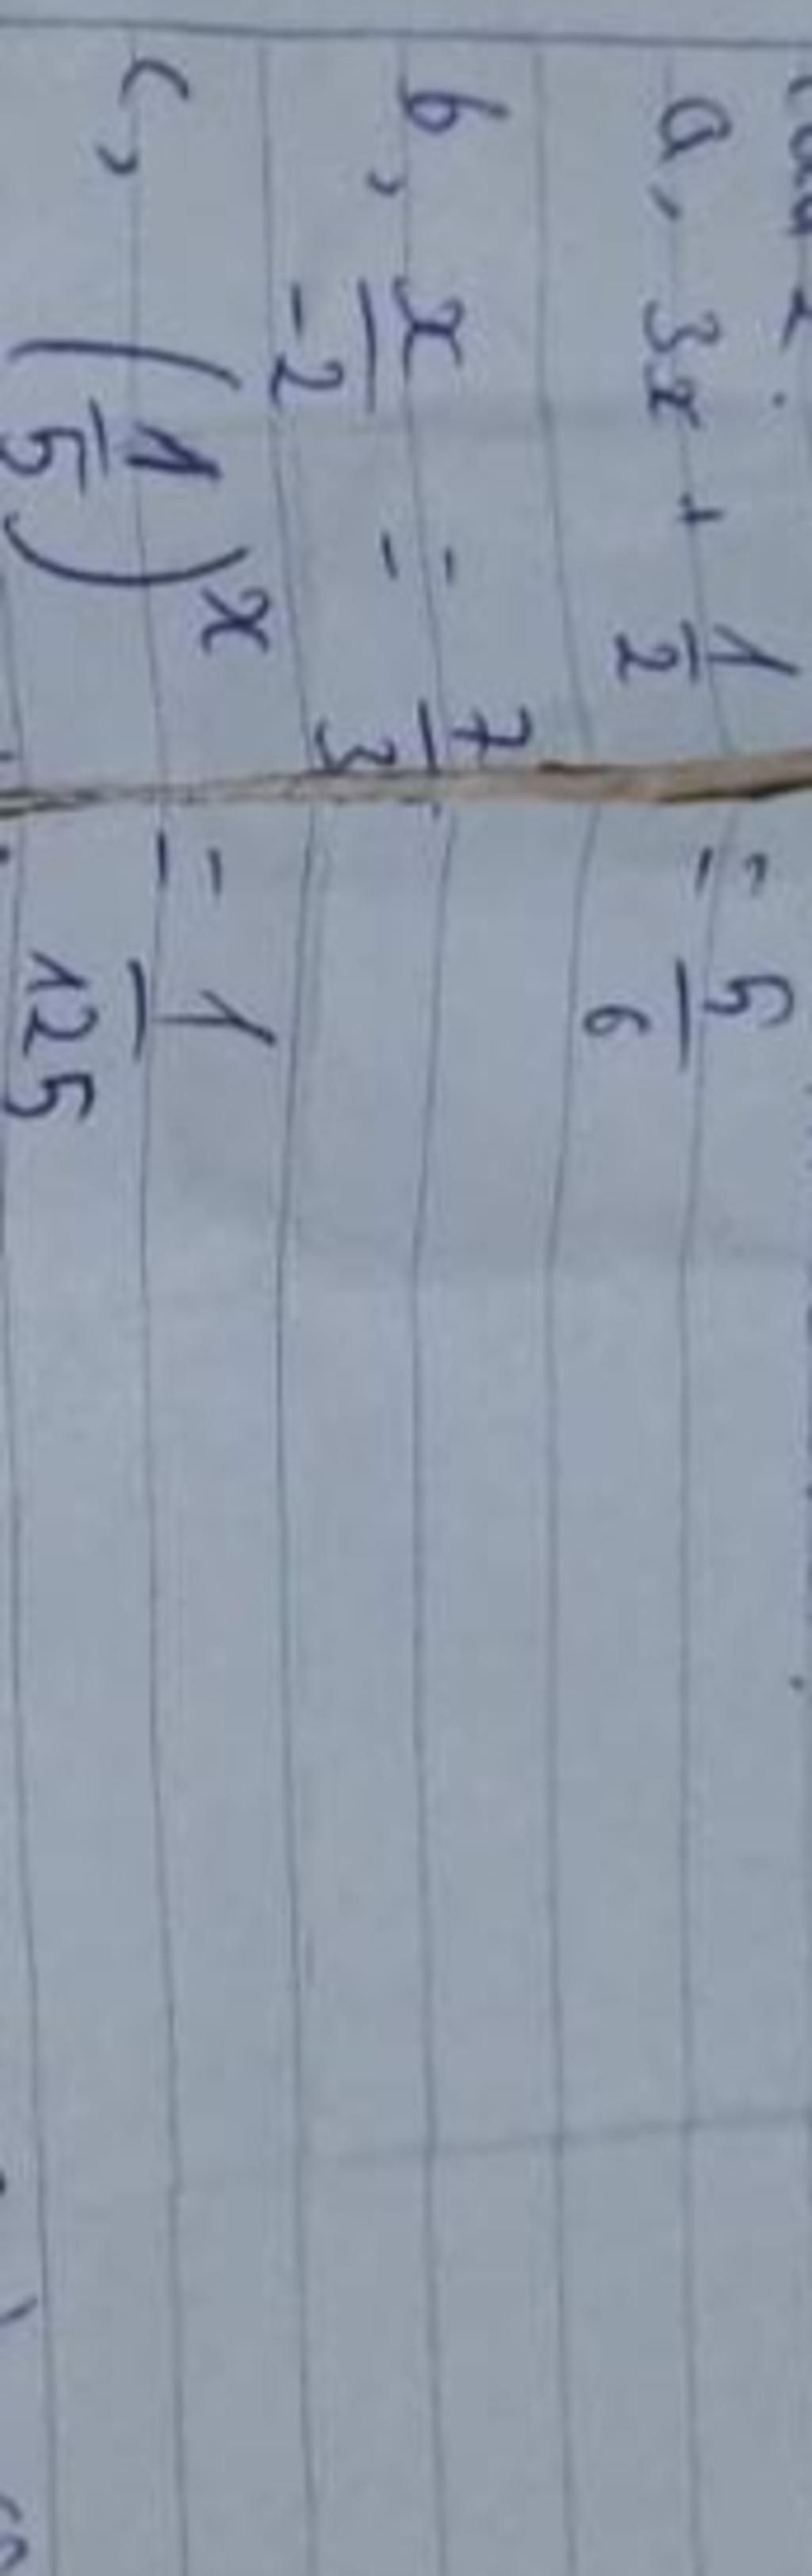 a, 3x + 1/2 = 5/6
b, x/-2 = 7/3
c, (1/5)^x = 1/125